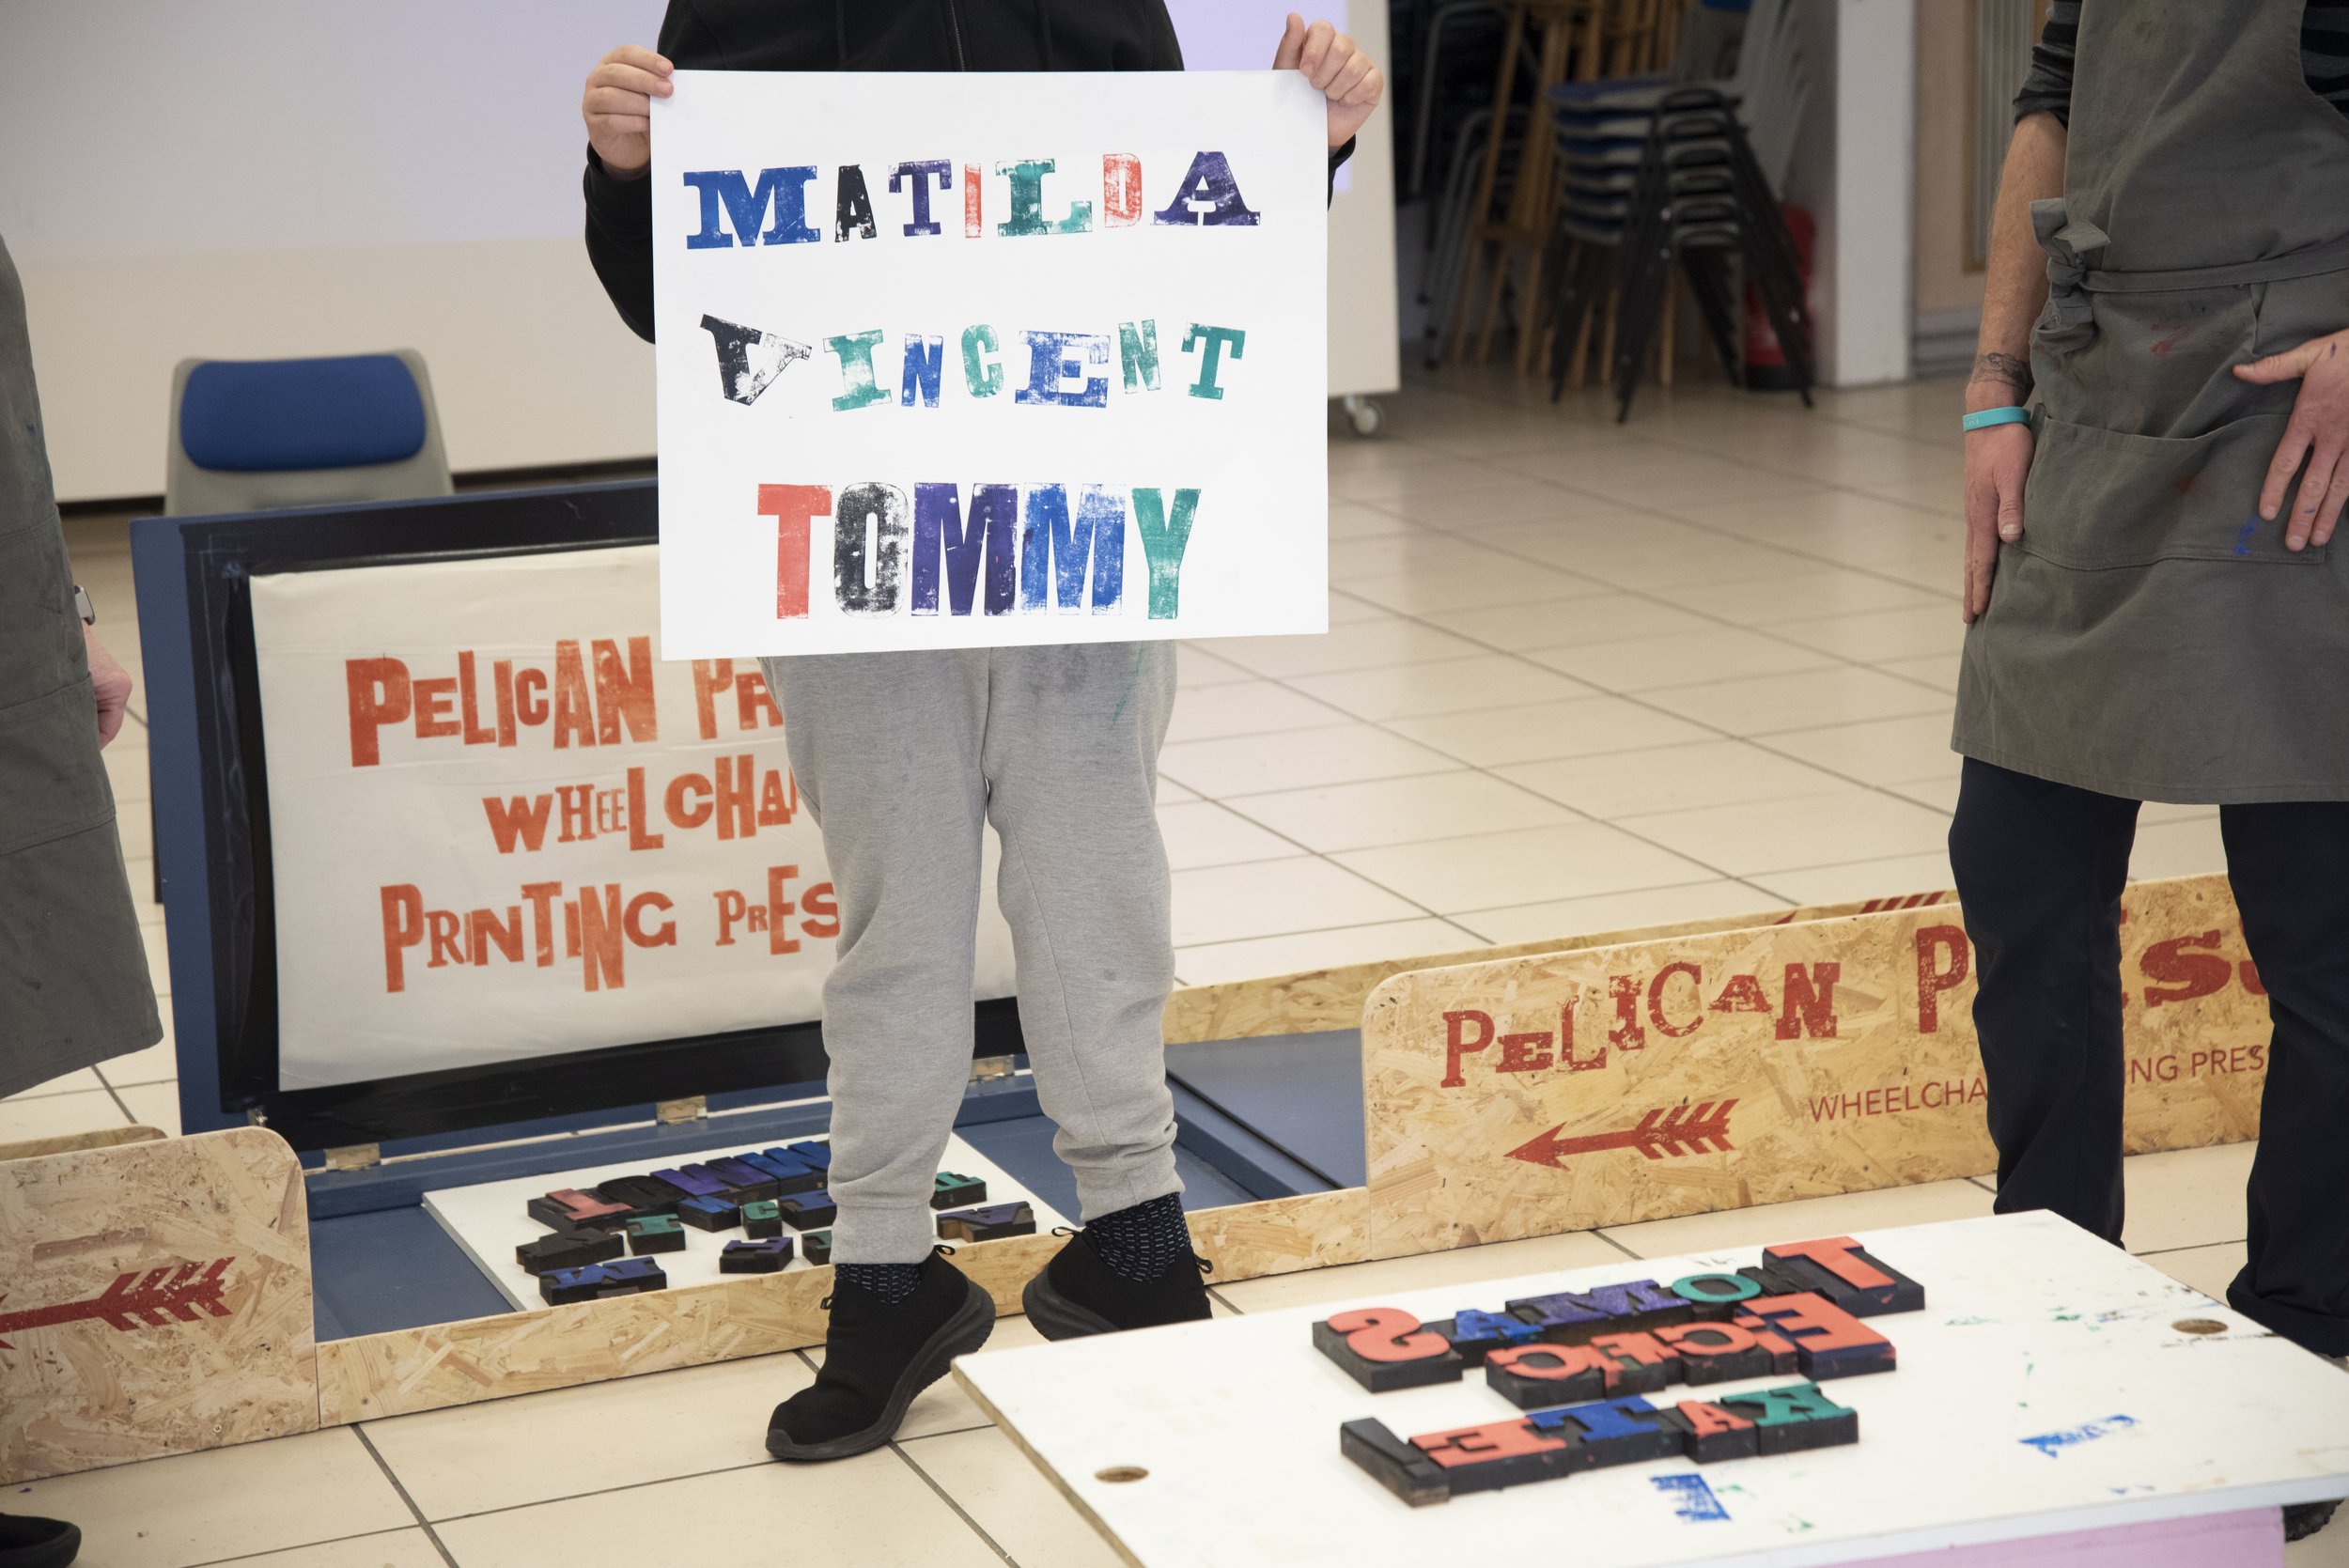 MATILDA
VINCENT
TOMMY
PELICAN PR
WHEELCHA
PRINTING PRES
PELICAN P ESS
WHEELCHA NG PRESS
THOMAS
KATE